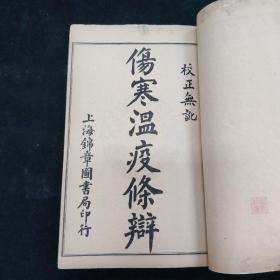 校正無訛
傷寒溫疫條辯
上海錦章圖書局印行